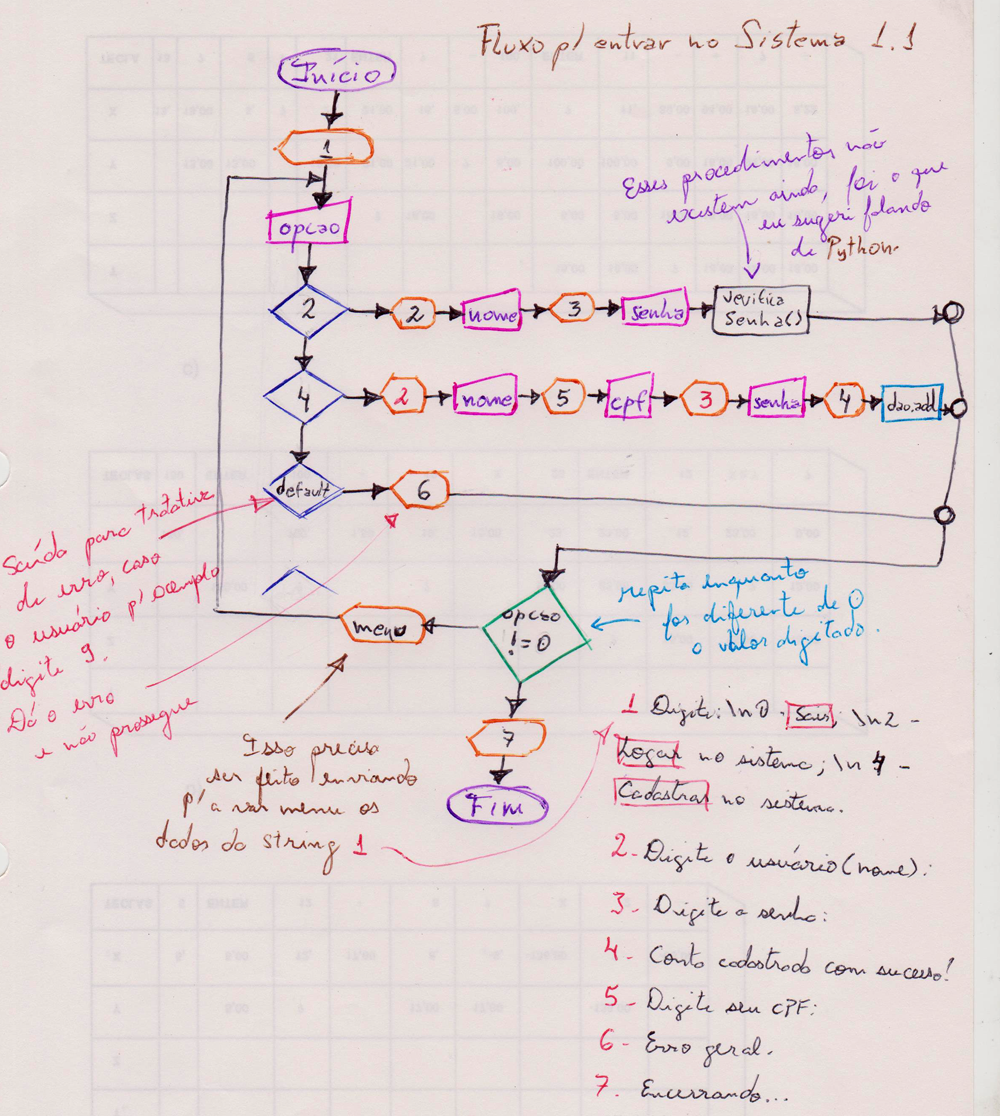 Fluxo p/ entrar no Sistema 1.1
Início
1
opcao
Esses procedimentos não
existem ainda, foi o que
eu sugeri falando
de Python.
2
2
nome
3
senha
verifica
Senha()
4
2
nome
5
cpf
3
senha
4
dao.add
default
6
Saída para tratativa
de erro, caso
o usuário p/ exemplo
digite 9.
Dá o erro
e não prossegue
opcao
!=0
menu
repita enquanto
for diferente de 0
o valor digitado.
7
Fim
Isso precisa
ser feito enviando
p/ a var menu os
dados da string 1
1 Digite: \n0 - Sair; \n2 -
Logar no sistema; \n 4 -
Cadastrar no sistema.
2. Digite o usuário (nome):
3 - Digite a senha:
4 - Conta cadastrada com sucesso!
5 - Digite seu CPF:
6 - Erro geral.
7. Encerrando...